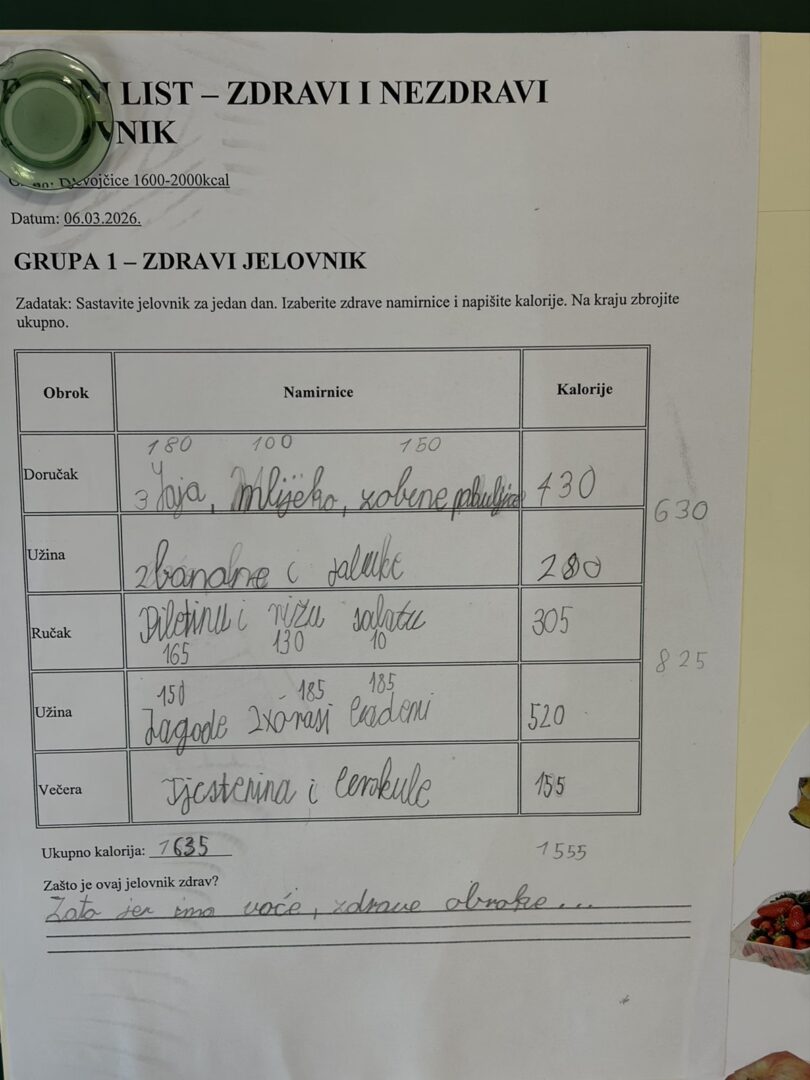 LIST – ZDRAVI I NEZDRAVI
VNIK
Djevojčice 1600-2000kcal
Datum: 06.03.2026.
GRUPA 1 – ZDRAVI JELOVNIK
Zadatak: Sastavite jelovnik za jedan dan. Izaberite zdrave namirnice i napišite kalorije. Na kraju zbrojite
ukupno.
Obrok Namirnice Kalorije
180 100 150
Doručak 3 Jaja, mlijeko, zobene pahuljice 430
630
Užina 2 banane i jabuke 280
Ručak Piletinu i rižu salatu 305
165 130 10
825
150 185 185
Užina Jagode 2xorasi bademi 520
Večera Tjestenina i brokule 155
Ukupno kalorija: 1635
1555
Zašto je ovaj jelovnik zdrav?
Zato jer ima voće, zdrave obroke...